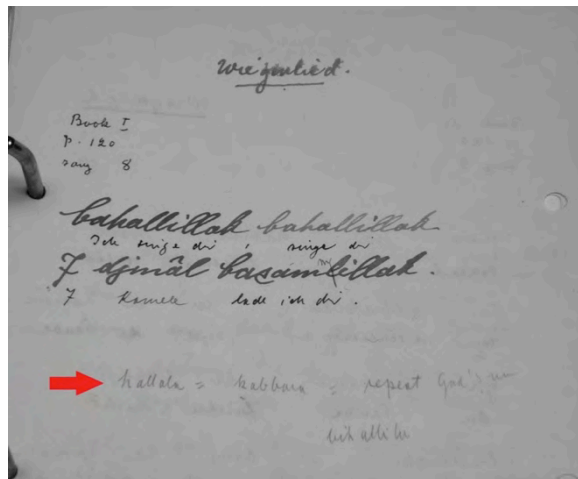 Wiegenlied.
Book I
p. 120
song 8
bahallillak bahallillak
Ich singe dir, singe dir
7 djmâl baçamlillak.
7 Kamele lade ich dir.
hallala = kabbara = repeat God's